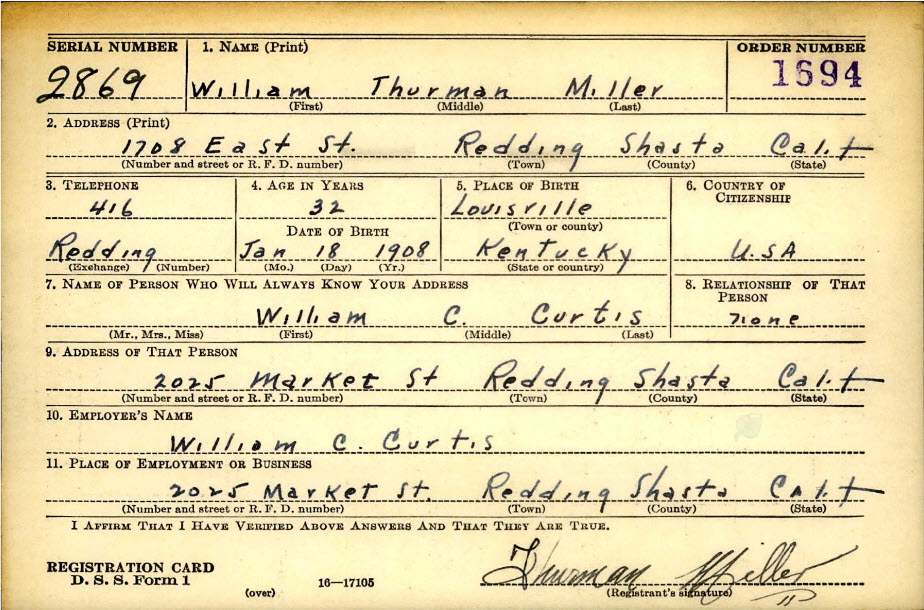 SERIAL NUMBER 1. NAME (Print) ORDER NUMBER
2869 William Thurman Miller 1694
(First) (Middle) (Last)
2. ADDRESS (Print)
1708 East St. Redding Shasta Calif
(Number and street or R. F. D. number) (Town) (County) (State)
3. TELEPHONE 4. AGE IN YEARS 5. PLACE OF BIRTH 6. COUNTRY OF CITIZENSHIP
416 32 Louisville
DATE OF BIRTH (Town or county)
Redding Jan 18 1908 Kentucky U.S.A
(Exchange) (Number) (Mo.) (Day) (Yr.) (State or country)
7. NAME OF PERSON WHO WILL ALWAYS KNOW YOUR ADDRESS 8. RELATIONSHIP OF THAT PERSON
William C. Curtis none
(Mr., Mrs., Miss) (First) (Middle) (Last)
9. ADDRESS OF THAT PERSON
2025 Market St Redding Shasta Calif
(Number and street or R. F. D. number) (Town) (County) (State)
10. EMPLOYER'S NAME
William C. Curtis
11. PLACE OF EMPLOYMENT OR BUSINESS
2025 Market St. Redding Shasta Calif
(Number and street or R. F. D. number) (Town) (County) (State)
I AFFIRM THAT I HAVE VERIFIED ABOVE ANSWERS AND THAT THEY ARE TRUE.
REGISTRATION CARD
D. S. S. Form 1 Thurman Miller
(over) 16—17105 (Registrant's signature)